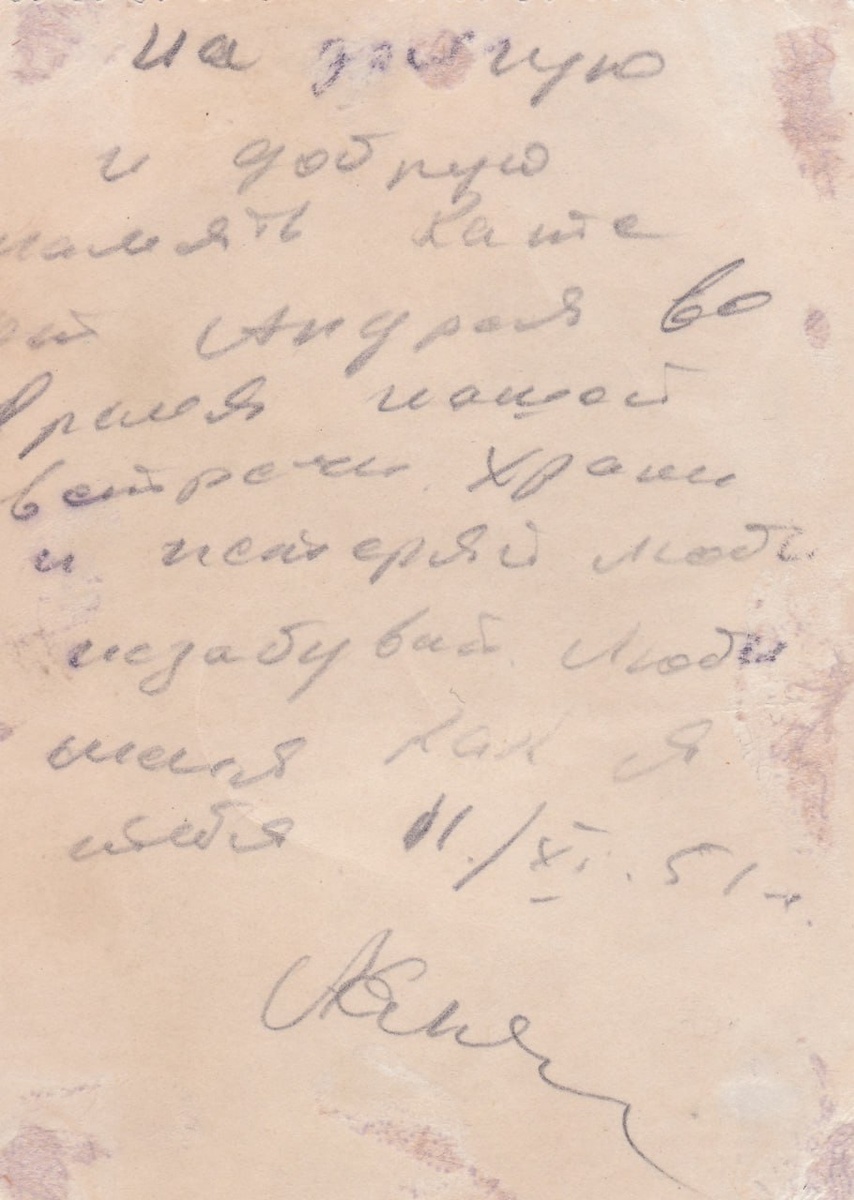 на долгую
и добрую
память Кате
от Андрея во
время нашей
встречи. Храни
и нетеряй люби
незабувай. Люби
меня как я
тебя 11./XI. 51 г.